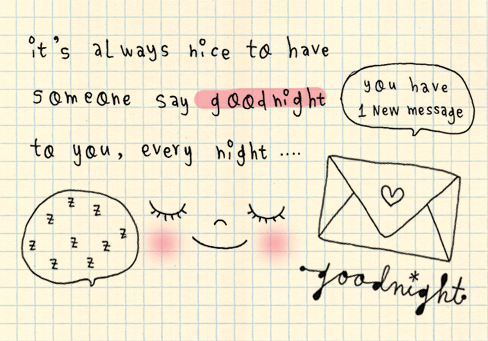 it's always nice to have
someone say goodnight
to you, every night ....
you have
1 New message
z z z
z z
z z z
z z
goodnight